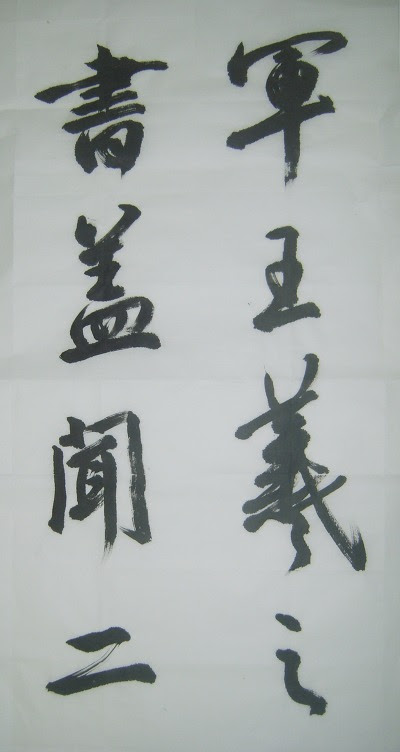 軍王羲之
書盖聞二